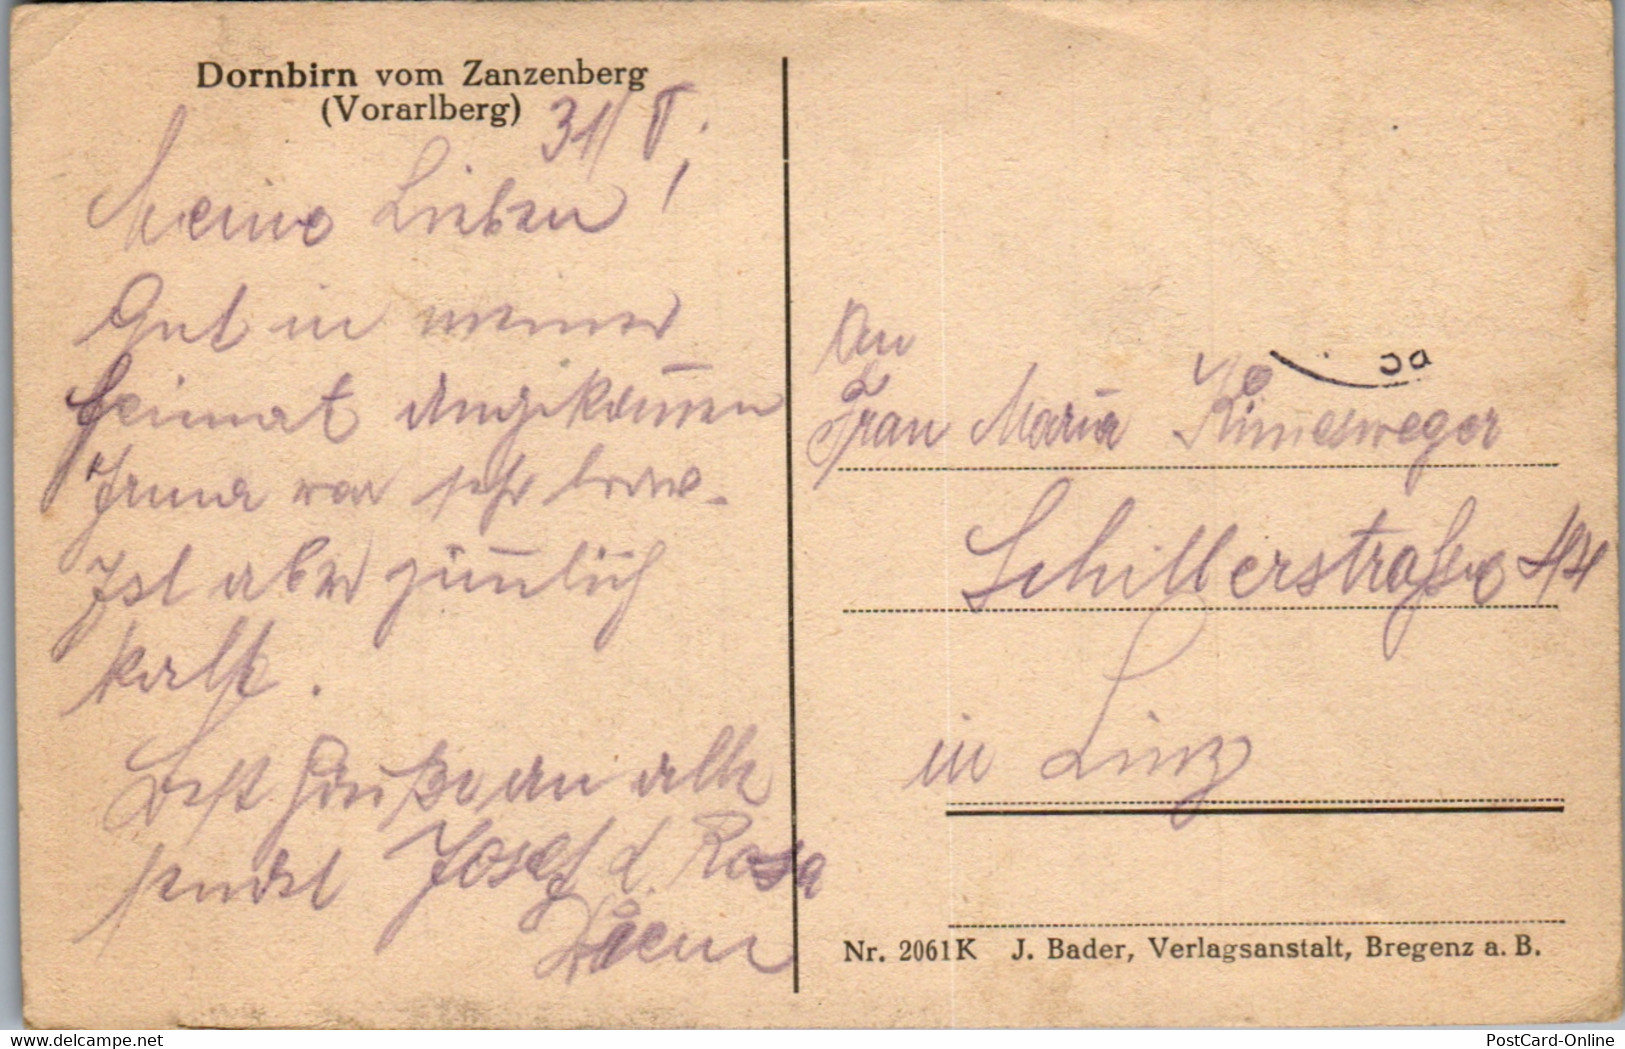 Dornbirn vom Zanzenberg
(Vorarlberg)
31/V.
Meine Lieben!
Gut in meiner
Heimat angekommen
Irma war sehr brav.
Ist aber ziemlich
kalt.
Best Grüße an alle
sendet Josef d. Rosa
An
Frau Maria
Schillerstraße 44
in Linz
Nr. 2061K J. Bader, Verlagsanstalt, Bregenz a. B.
www.delcampe.net
PostCard-Online